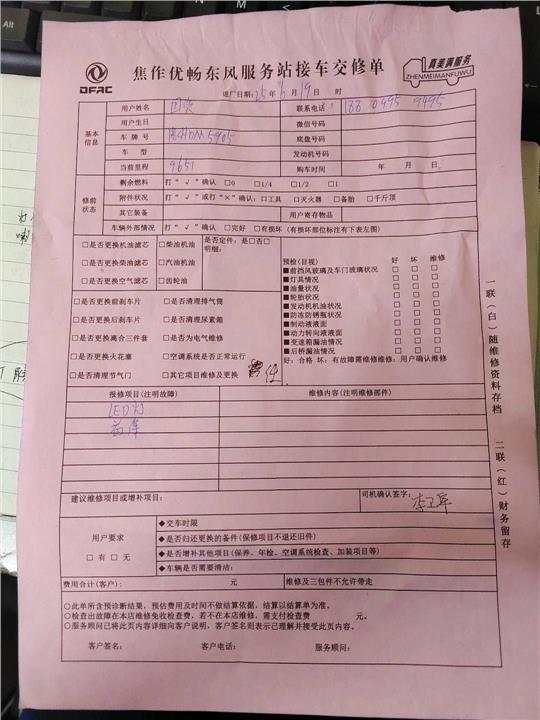 DFAC
焦作优畅东风服务站接车交修单
真美满服务
ZHENMEIMANFUWU
进厂日期: 25年 月19日 时
用户姓名 联系电话:
基本信息
用户生日 微信号码
车牌号 底盘号码
车型 发动机号码
当前里程 9651 购车时间 年 月 日
修前状态
剩余燃料 打“√”确认 □0 □1/4 □1/2 □1
附件状况 打“√”或打“×”确认: □工具 □灭火器 □备胎 □千斤顶
其它装备 用户寄存物品
车辆外部情况 打“√”确认 □完好 □有损坏(有损坏部位标注有下表左图)
□是否更换机油滤芯 □柴油机油 是否定件: 是□否□
明细:
□是否更换柴油滤芯 □汽油机油
□是否更换空气滤芯 □齿轮油
□是否更换前刹车片 □是否清理排气筒
□是否更换后刹车片 □是否清理尿素箱
□是否更换离合三件套 □是否为电气维修
□是否更换火花塞 □空调系统是否正常运行
□是否清理节气门 □其它项目维修及更换
预检(目视) 好 坏 维修
■前挡风玻璃及车门玻璃状况 □ □ □
■灯具情况 □ □ □
■油量状况 □ □ □
■轮胎状况 □ □ □
■发动机机油状况 □ □ □
■防冻防锈瓶状况 □ □ □
■制动液液面 □ □ □
■动力转向液液面 □ □ □
■变速箱漏油情况 □ □ □
■后桥漏油情况 □ □ □
好: 合格 坏: 有故障需维修维修: 用户确认维修
报修项目(注明故障) 维修内容(注明维修部件)
LED灯
建议维修项目或增补项目: 司机确认签字:
用户要求
□有 □无
◆交车时限
◆是否归还更换的备件(保修项目不退还旧件)
◆是否增补其他项目(保养、年检、空调系统检查、加装项目等)
◆车辆是否需要清洁:
费用合计(客户): 元 维修及三包件不允许带走
○此单所含预诊断结果, 预估费用及时间不做结算依据, 结算以结算单为准。
○检查出故障在本店维修免收检查费, 若不在本店维修, 需支付检查费 元。
○服务顾问已将此页内容详细向客户说明, 客户签名则表示已理解并接受此页内容。
客户签名: 客户电话: 服务顾问:
一联(白)随维修资料存档
二联(红)财务留存